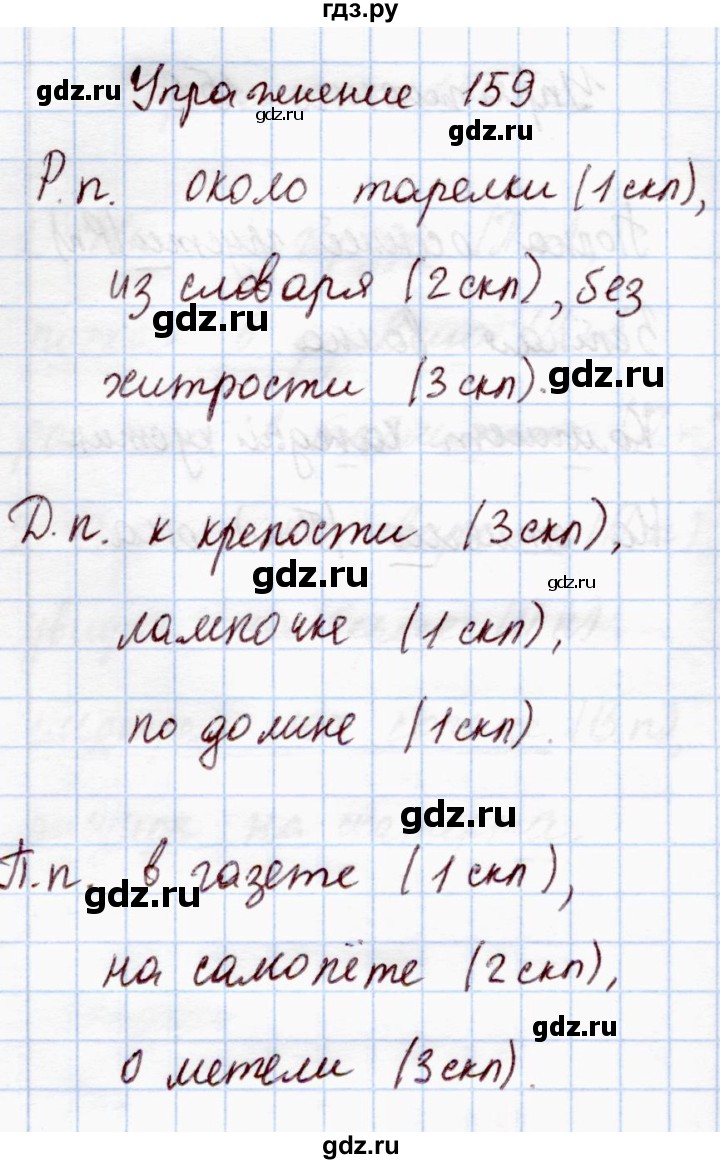 гдз.ру
gdz.ru
Упражнение 159
gdz.ru
gdz.ru
Р.п. около тарелки (1 скл),
из словаря (2 скл), без
gdz.ru
хитрости (3 скл).
gdz.ru
Д.п. к крепости (3 скл),
gdz.ru
gdz.ru
лампочке (1 скл),
по долине (1 скл).
gdz.ru
П.п. в газете (1 скл),
gdz.ru
на самолёте (2 скл),
gdz.ru
о метели (3 скл).
gdz.ru